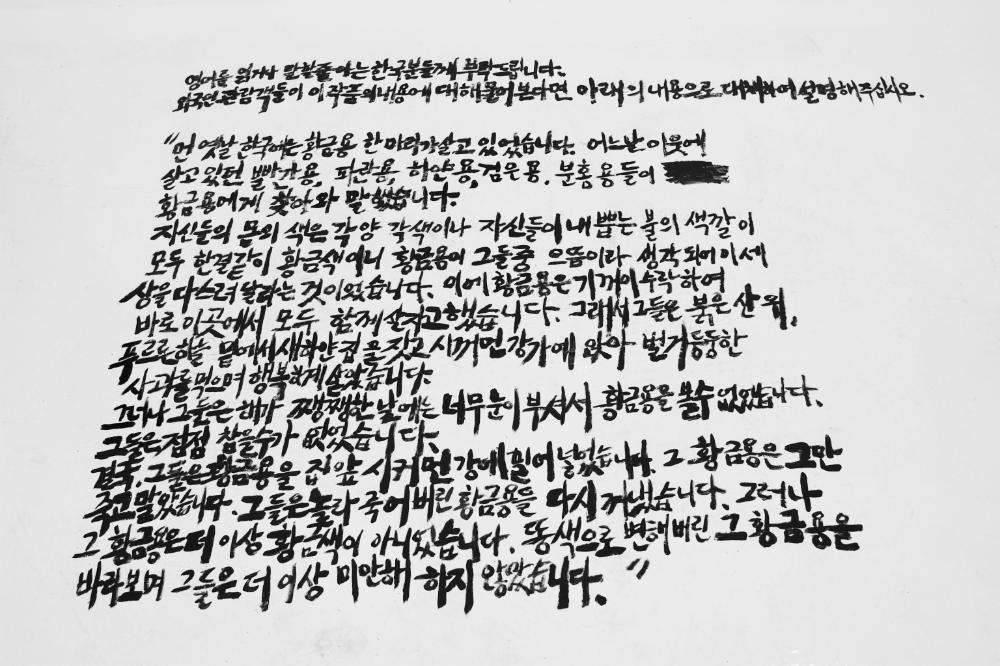 영어를 읽거나 말할줄 아는 한국분들께 부탁드립니다.
외국인 관람객들이 이 작품의 내용에 대해 물어본다면 아래의 내용으로 대체하여 설명해 주십시오.
"먼 옛날 한국에는 황금용 한마리가 살고 있었습니다. 어느날 이웃에
살고 있던 빨간용, 파란용, 하얀용, 검은용, 분홍용들이
황금용에게 찾아와 말했습니다.
자신들의 몸의 색은 각양 각색이나 자신들이 내뿜는 불의 색깔이
모두 한결같이 황금색이니 황금용이 그들중 으뜸이라 생각되어 이 세
상을 다스려 달라는 것이었습니다. 이에 황금용은 기꺼이 수락하여
바로 이곳에서 모두 함께 살자고 했습니다. 그래서 그들은 붉은 산 위,
푸르른 하늘 밑에서 새하얀 집을 짓고 시꺼먼 강가에 앉아 벌거둥둥한
사과를 먹으며 행복하게 살았습니다.
그러나 그들은 해가 쨍쨍한 날에는 너무 눈이 부셔서 황금용을 볼수 없었습니다.
그들은 점점 참을수가 없었습니다.
결국, 그들은 황금용을 집 앞 시커먼 강에 밀어 넣었습니다. 그 황금용은 그만
죽고 말았습니다. 그들은 놀라 죽어버린 황금용을 다시 꺼냈습니다. 그러나
그 황금용은 더 이상 황금색이 아니었습니다. 똥색으로 변해버린 그 황금용을
바라보며 그들은 더 이상 미안해 하지 않았습니다."